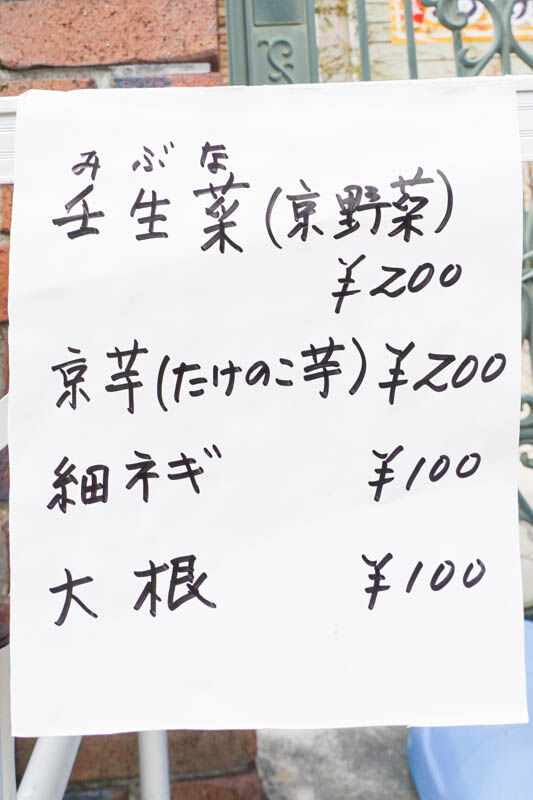 みぶな
壬生菜(京野菜)
¥200
京芋(たけのこ芋)¥200
細ネギ ¥100
大根 ¥100